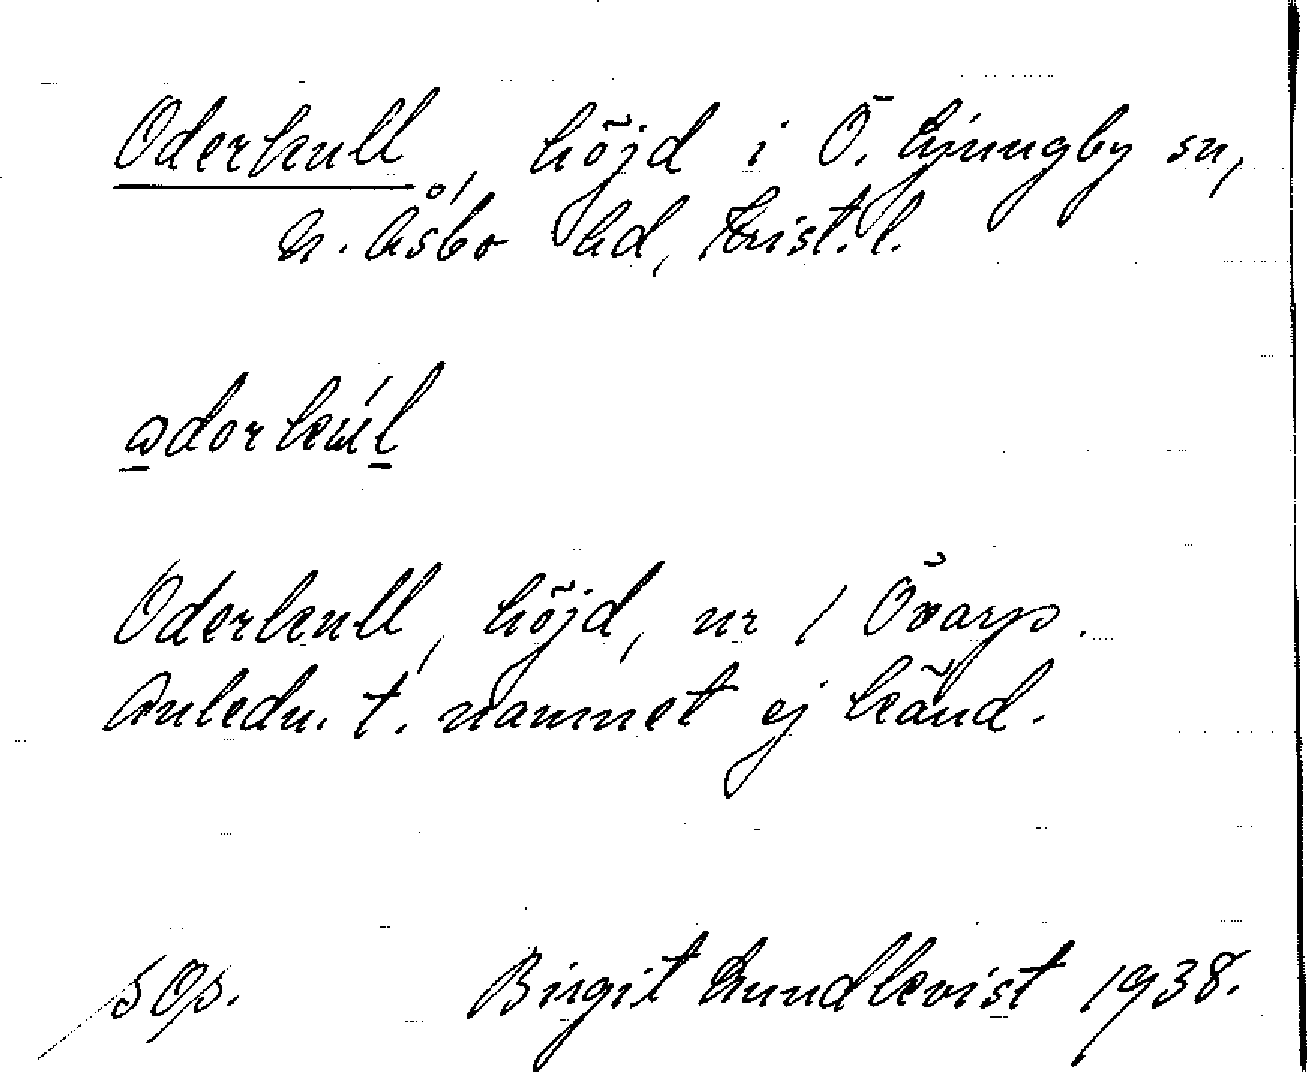 Oderkull, höjd i Ö. Ljungby sn,
N. Åsbo hd, Krist. l.
Oderkull, höjd, nr 1 Övarp.
Anledn. t. namnet ej känd.
Birgit Lundkvist 1938.